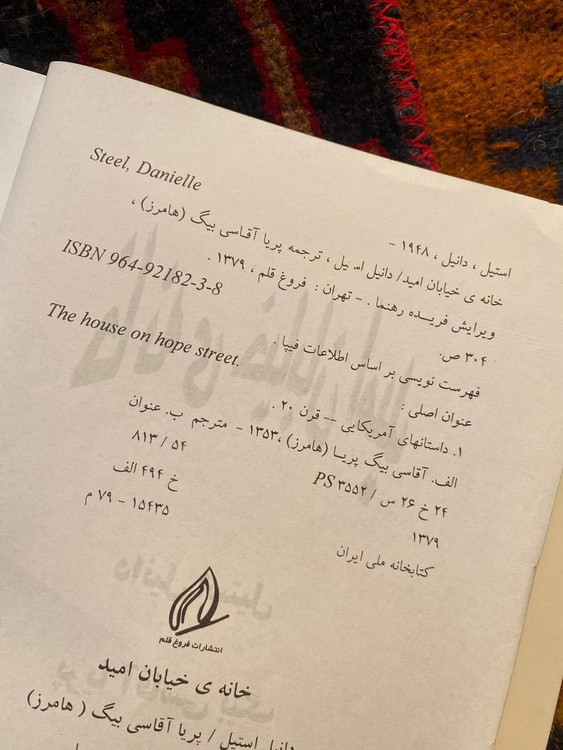 Steel, Danielle
استیل ، دانیل ، ۱۹۴۸ -
خانه ی خیابان امید/ دانیل استیل ، ترجمه پریا آقاسی بیگ (هامرز) ،
ویرایش فریده رهنما . - تهران : فروغ قلم ، ۱۳۷۹ .
۳۰۴ ص.
ISBN 964-92182-3-8
فهرست نویسی بر اساس اطلاعات فیپا .
عنوان اصلی :
The house on hope street.
۱. داستانهای آمریکایی -- قرن ۲۰ .
الف. آقاسی بیگ پریا (هامرز) ،۱۳۵۳ - مترجم ب. عنوان
۲۴ خ ۲۶ س / PS ۳۵۵۲
۸۱۳ / ۵۴
۱۳۷۹
خ ۴۹۴ الف
کتابخانه ملی ایران
۱۵۴۳۵ - ۷۹ م
انتشارات فروغ قلم
خانه ی خیابان امید
دانیل استیل / پریا آقاسی بیگ ( هامرز)